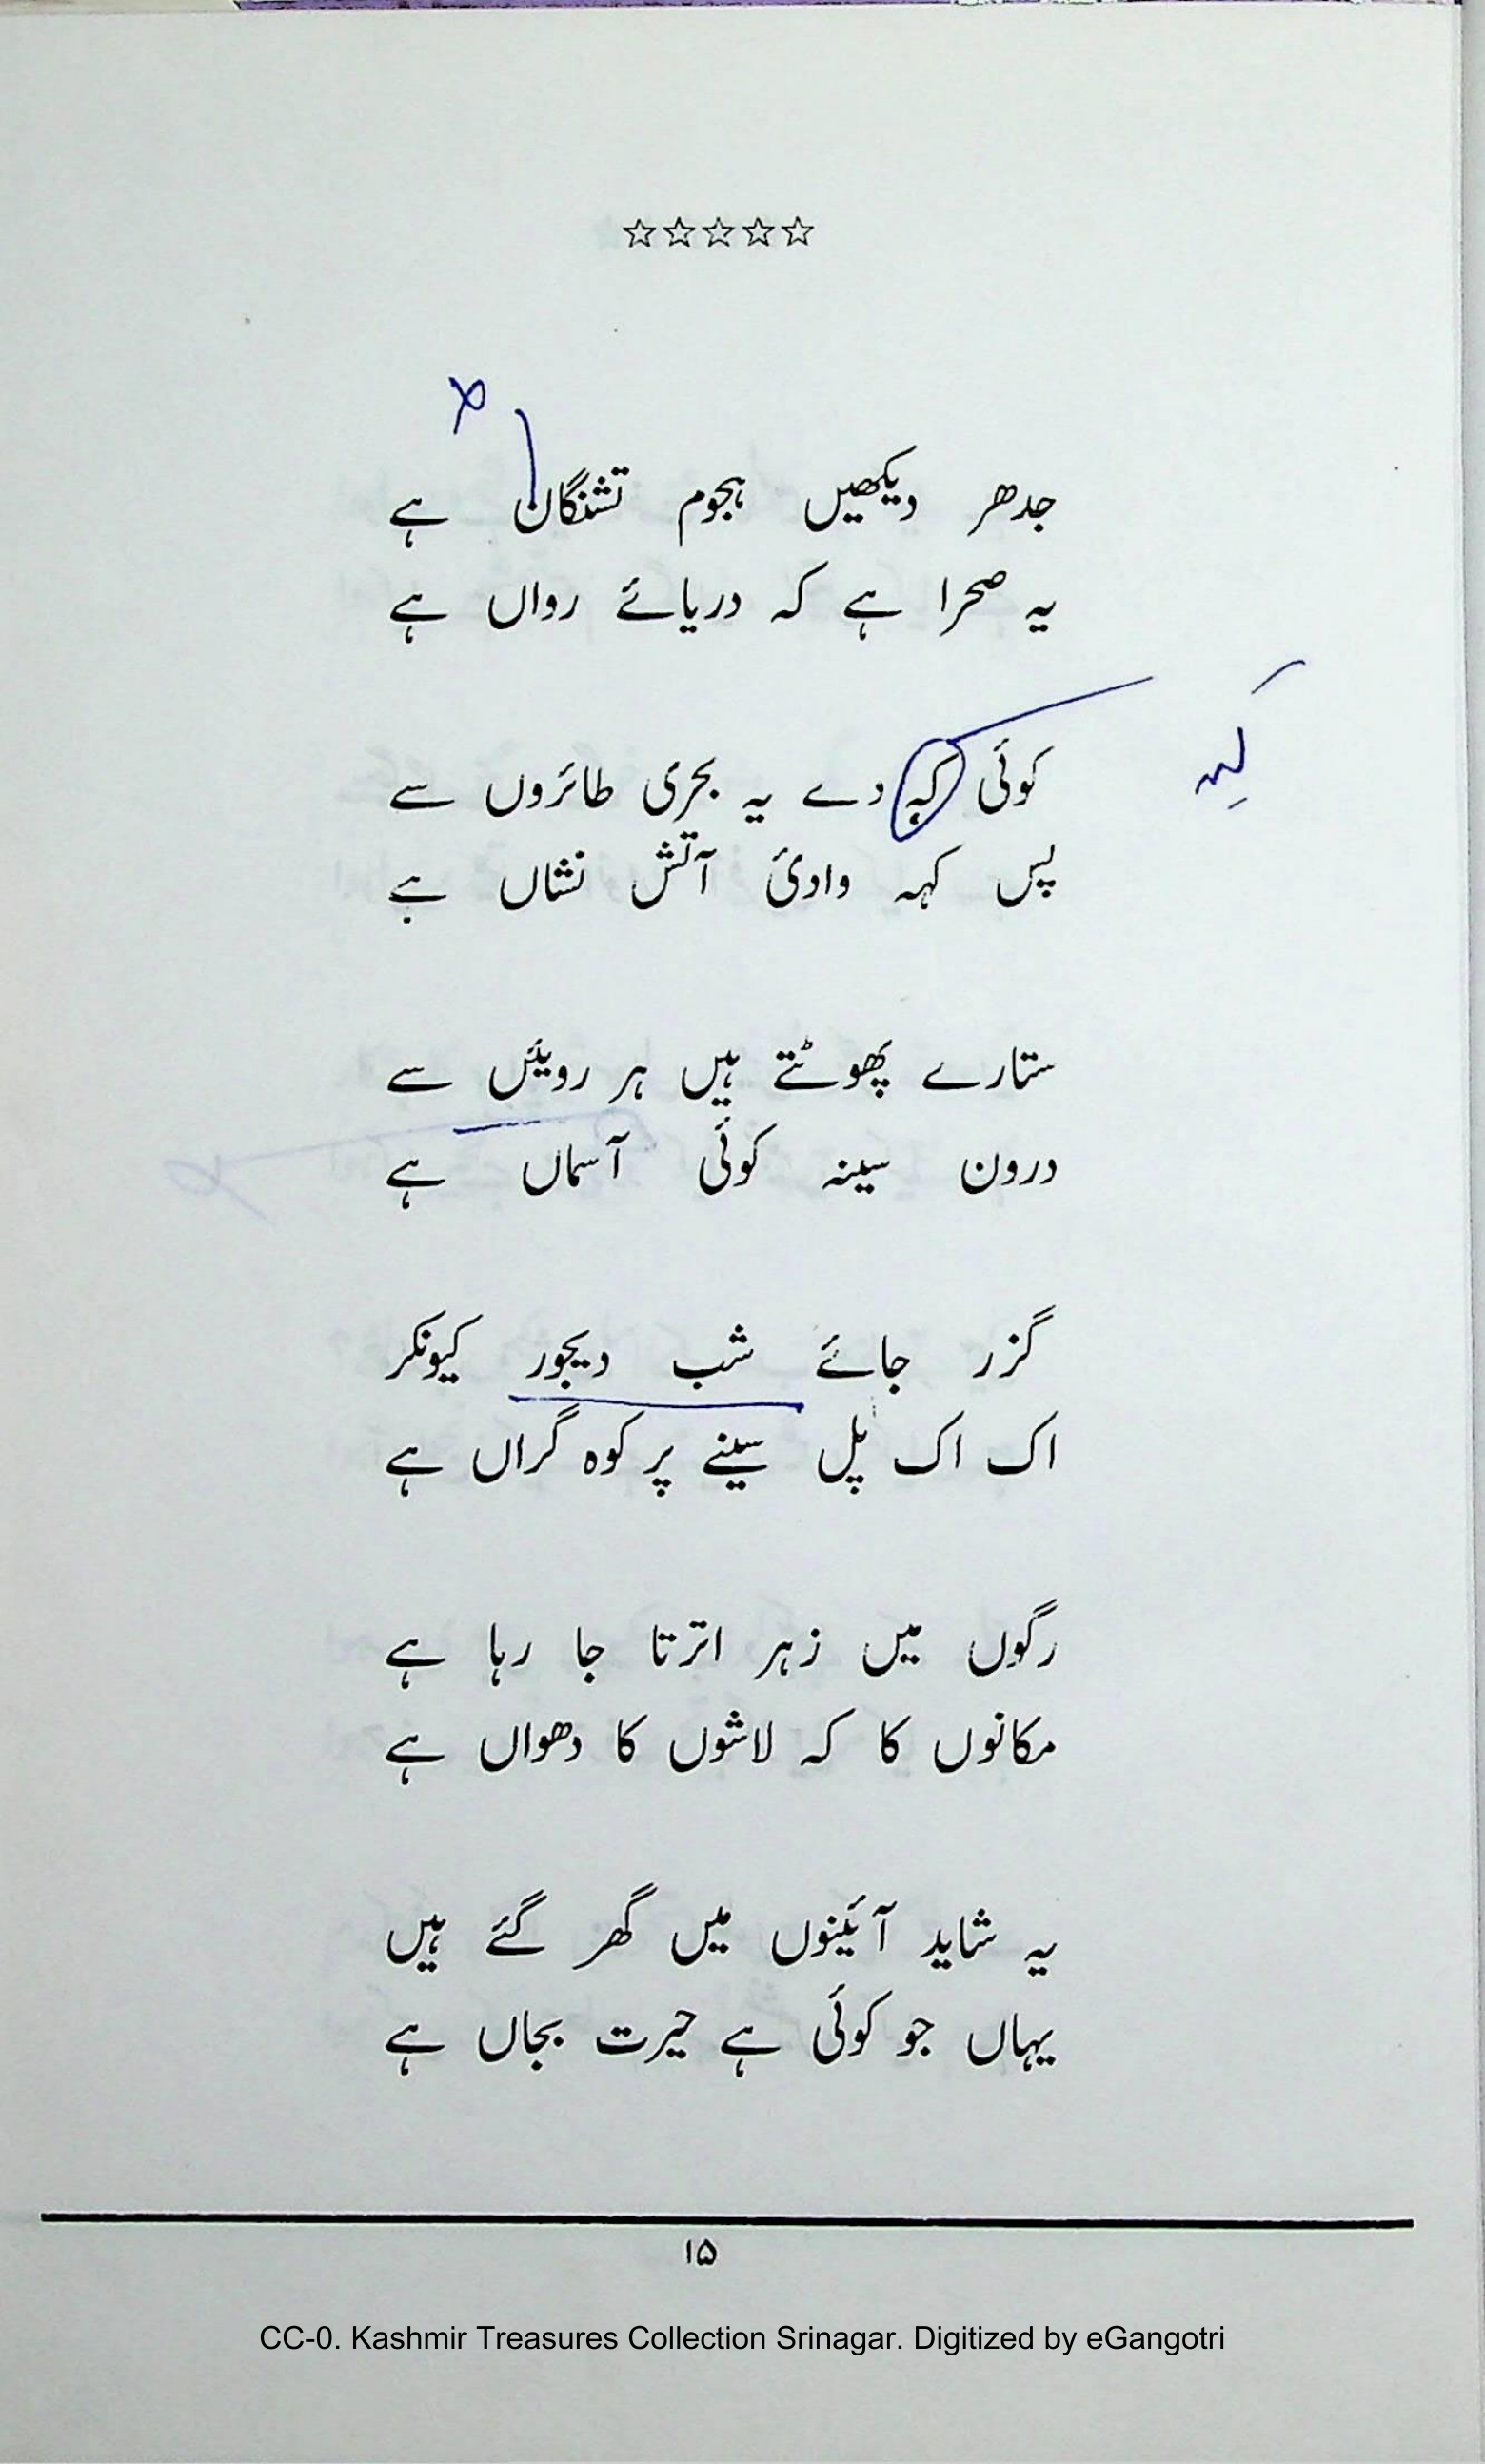 ☆☆☆☆☆
جدھر دیکھیں ہجوم تشنگاں ہے
یہ صحرا ہے کہ دریائے رواں ہے
کوئی کہہ دے یہ بحری طائروں سے
کہہ
پس کہہ وادئ آتش نشاں ہے
ستارے پھوٹتے ہیں ہر روئیں سے
درون سینہ کوئی آسماں ہے
گزر جائے شب دیجور کیونکر
اک اک پل سینے پر کوہ گراں ہے
رگوں میں زہر اترتا جا رہا ہے
مکانوں کا کہ لاشوں کا دھواں ہے
یہ شاید آئینوں میں گھر گئے ہیں
یہاں جو کوئی ہے حیرت بجاں ہے
۱۵
CC-0. Kashmir Treasures Collection Srinagar. Digitized by eGangotri